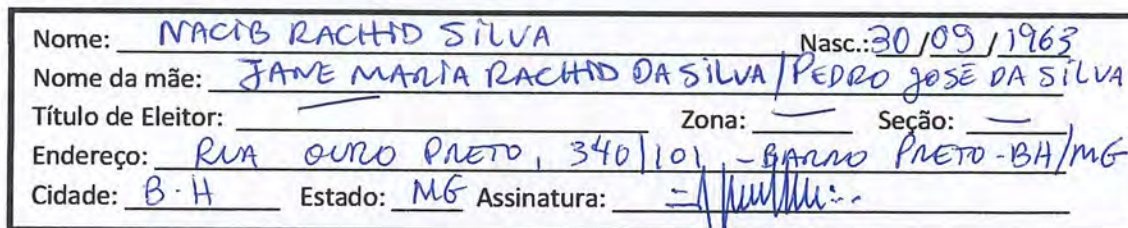 Nome: NACIB RACHID SILVA Nasc.: 30/09/1963
Nome da mãe: JANE MARIA RACHID DA SILVA / PEDRO JOSÉ DA SILVA
Título de Eleitor: — Zona: — Seção: —
Endereço: RUA OURO PRETO, 340/101 - BARRO PRETO - BH/MG
Cidade: B.H Estado: MG Assinatura: